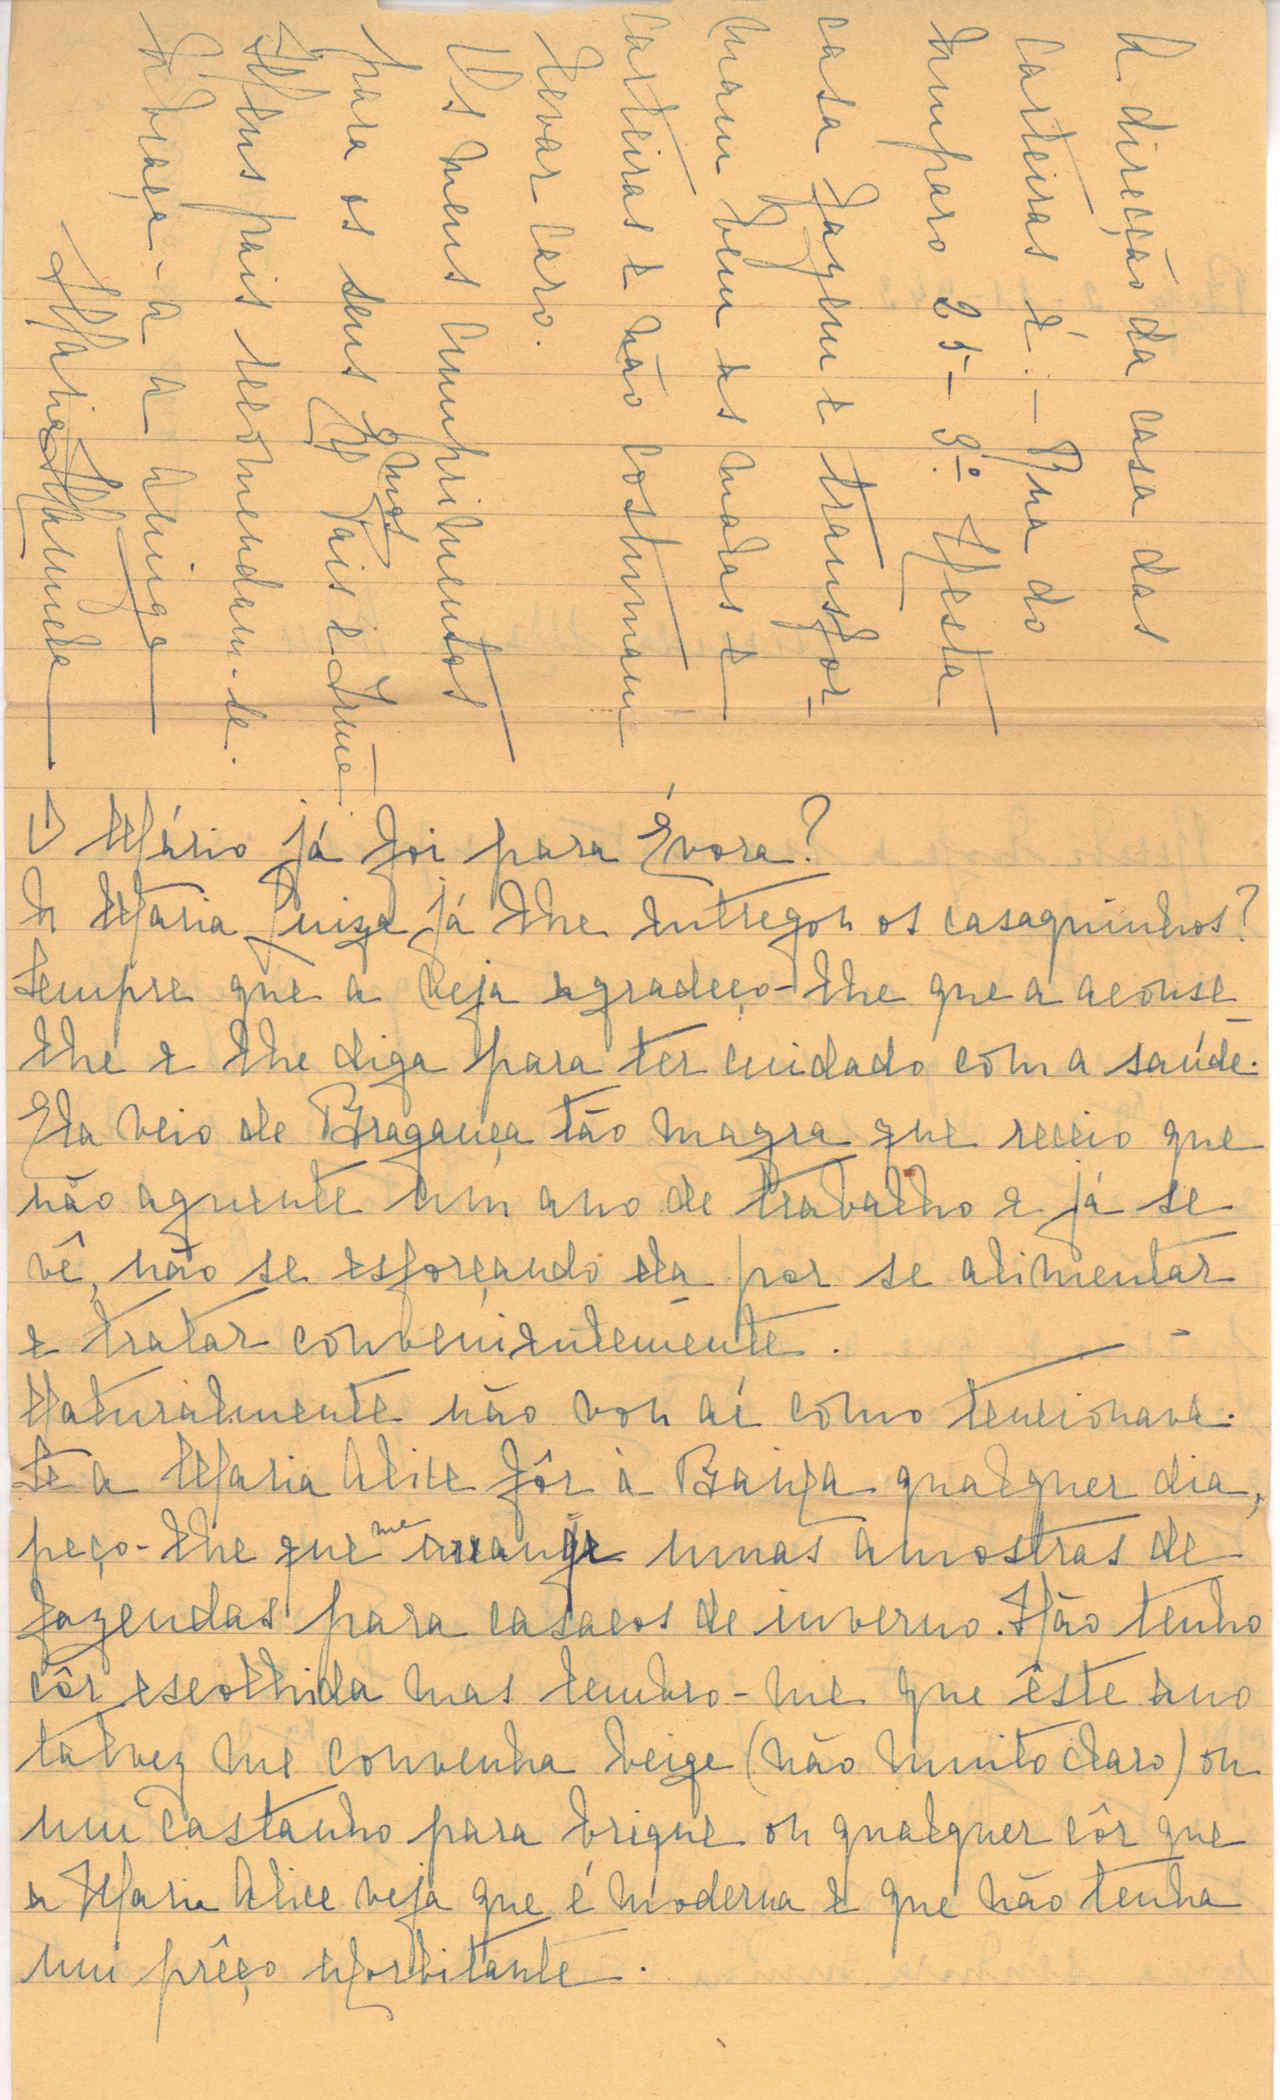 O Mário já foi para Évora?
A Maria Luiza já lhe entregou os casaquinhos?
Sempre que a veja agradeço-lhe que a aconse
lhe e lhe diga para ter cuidado com a saúde.
Ela veio de Bragança tão magra que receio que
não aguente um ano de trabalho e já se
vê, não se esforçando ela por se alimentar
e tratar convenientemente.
Naturalmente não vou aí como tencionava.
Se a Maria Alice fôr à Baixa qualquer dia,
peço-lhe que me arranje umas amostras de
fazendas para casacos de inverno. Não tenho
côr escolhida mas lembro-me que êste ano
talvez me convenha beige (não muito claro) ou
um castanho para brique ou qualquer côr que
a Maria Alice veja que é moderna e que não tenha
um prêço exorbitante.
A direcção da casa das
carteiras é: - Rua do
Amparo 25-3º. Nesta
casa fazem e transfor-
mam bem as malas e
carteiras e não costumam
levar caro.
Os meus cumprimentos
para os seus Exmos Pais e Irmã.
Meus pais recomendam-se.
Abraça-a a amiga
Maria Manuela